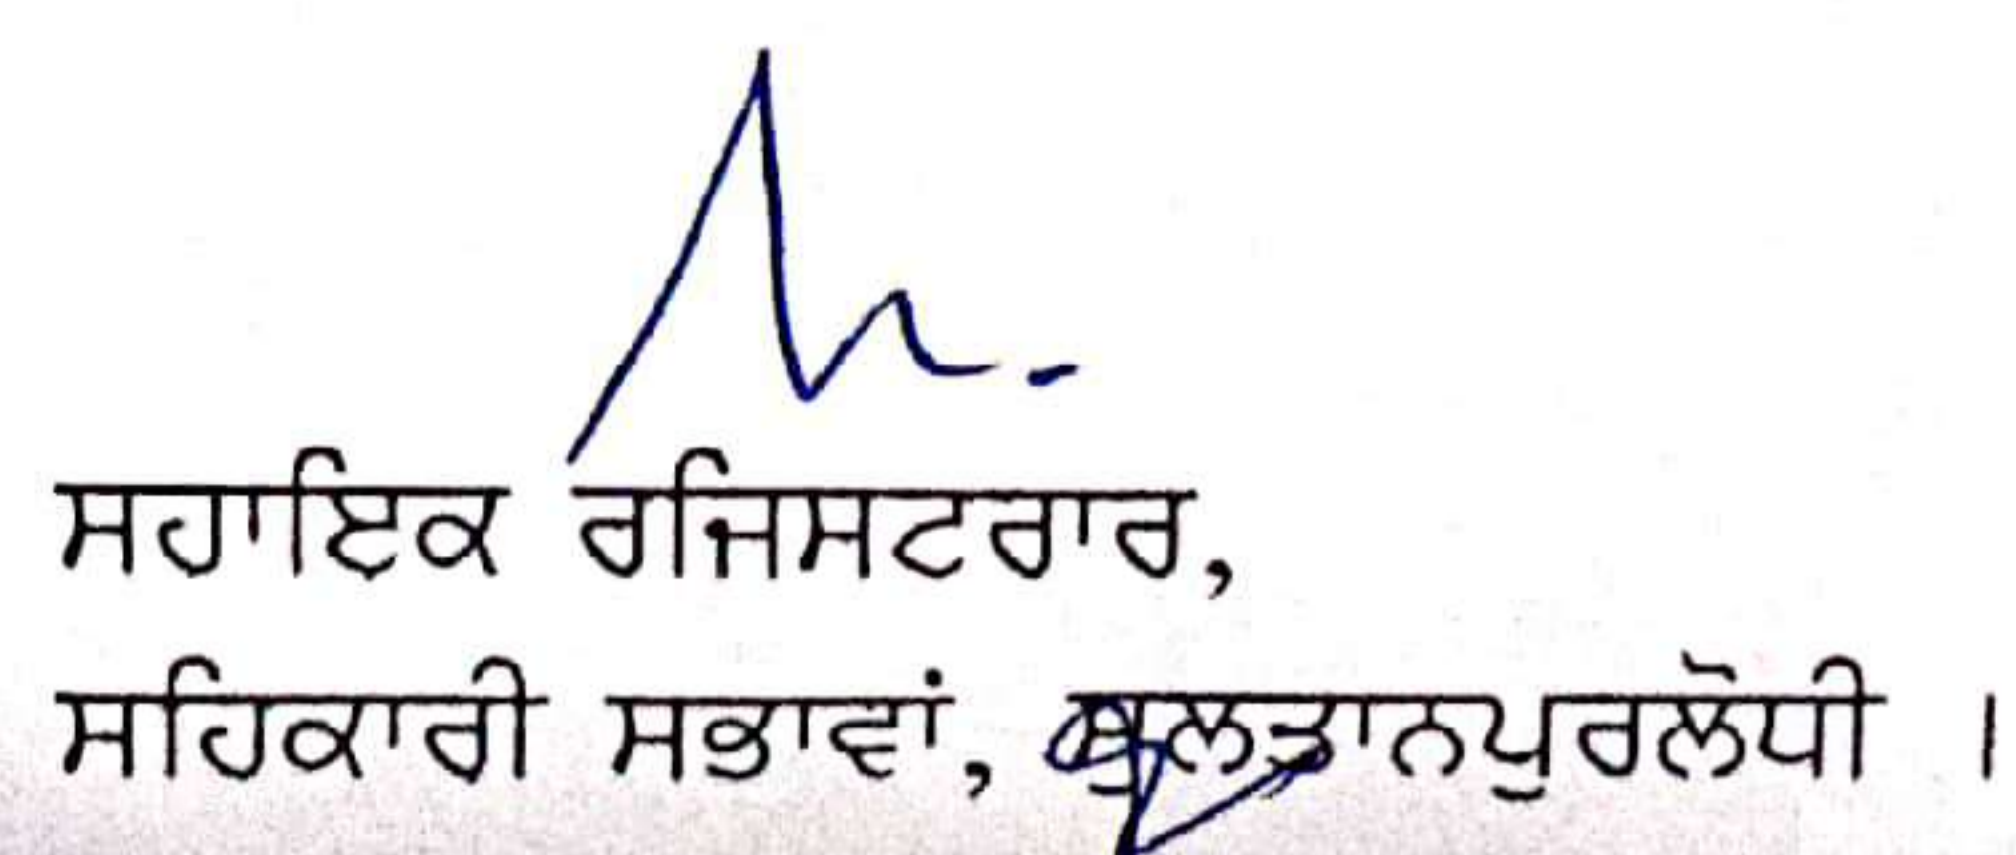 ਸਹਾਇਕ ਰਜਿਸਟਰਾਰ,
ਸਹਿਕਾਰੀ ਸਭਾਵਾਂ, ਸੁਲਤਾਨਪੁਰਲੋਧੀ ।